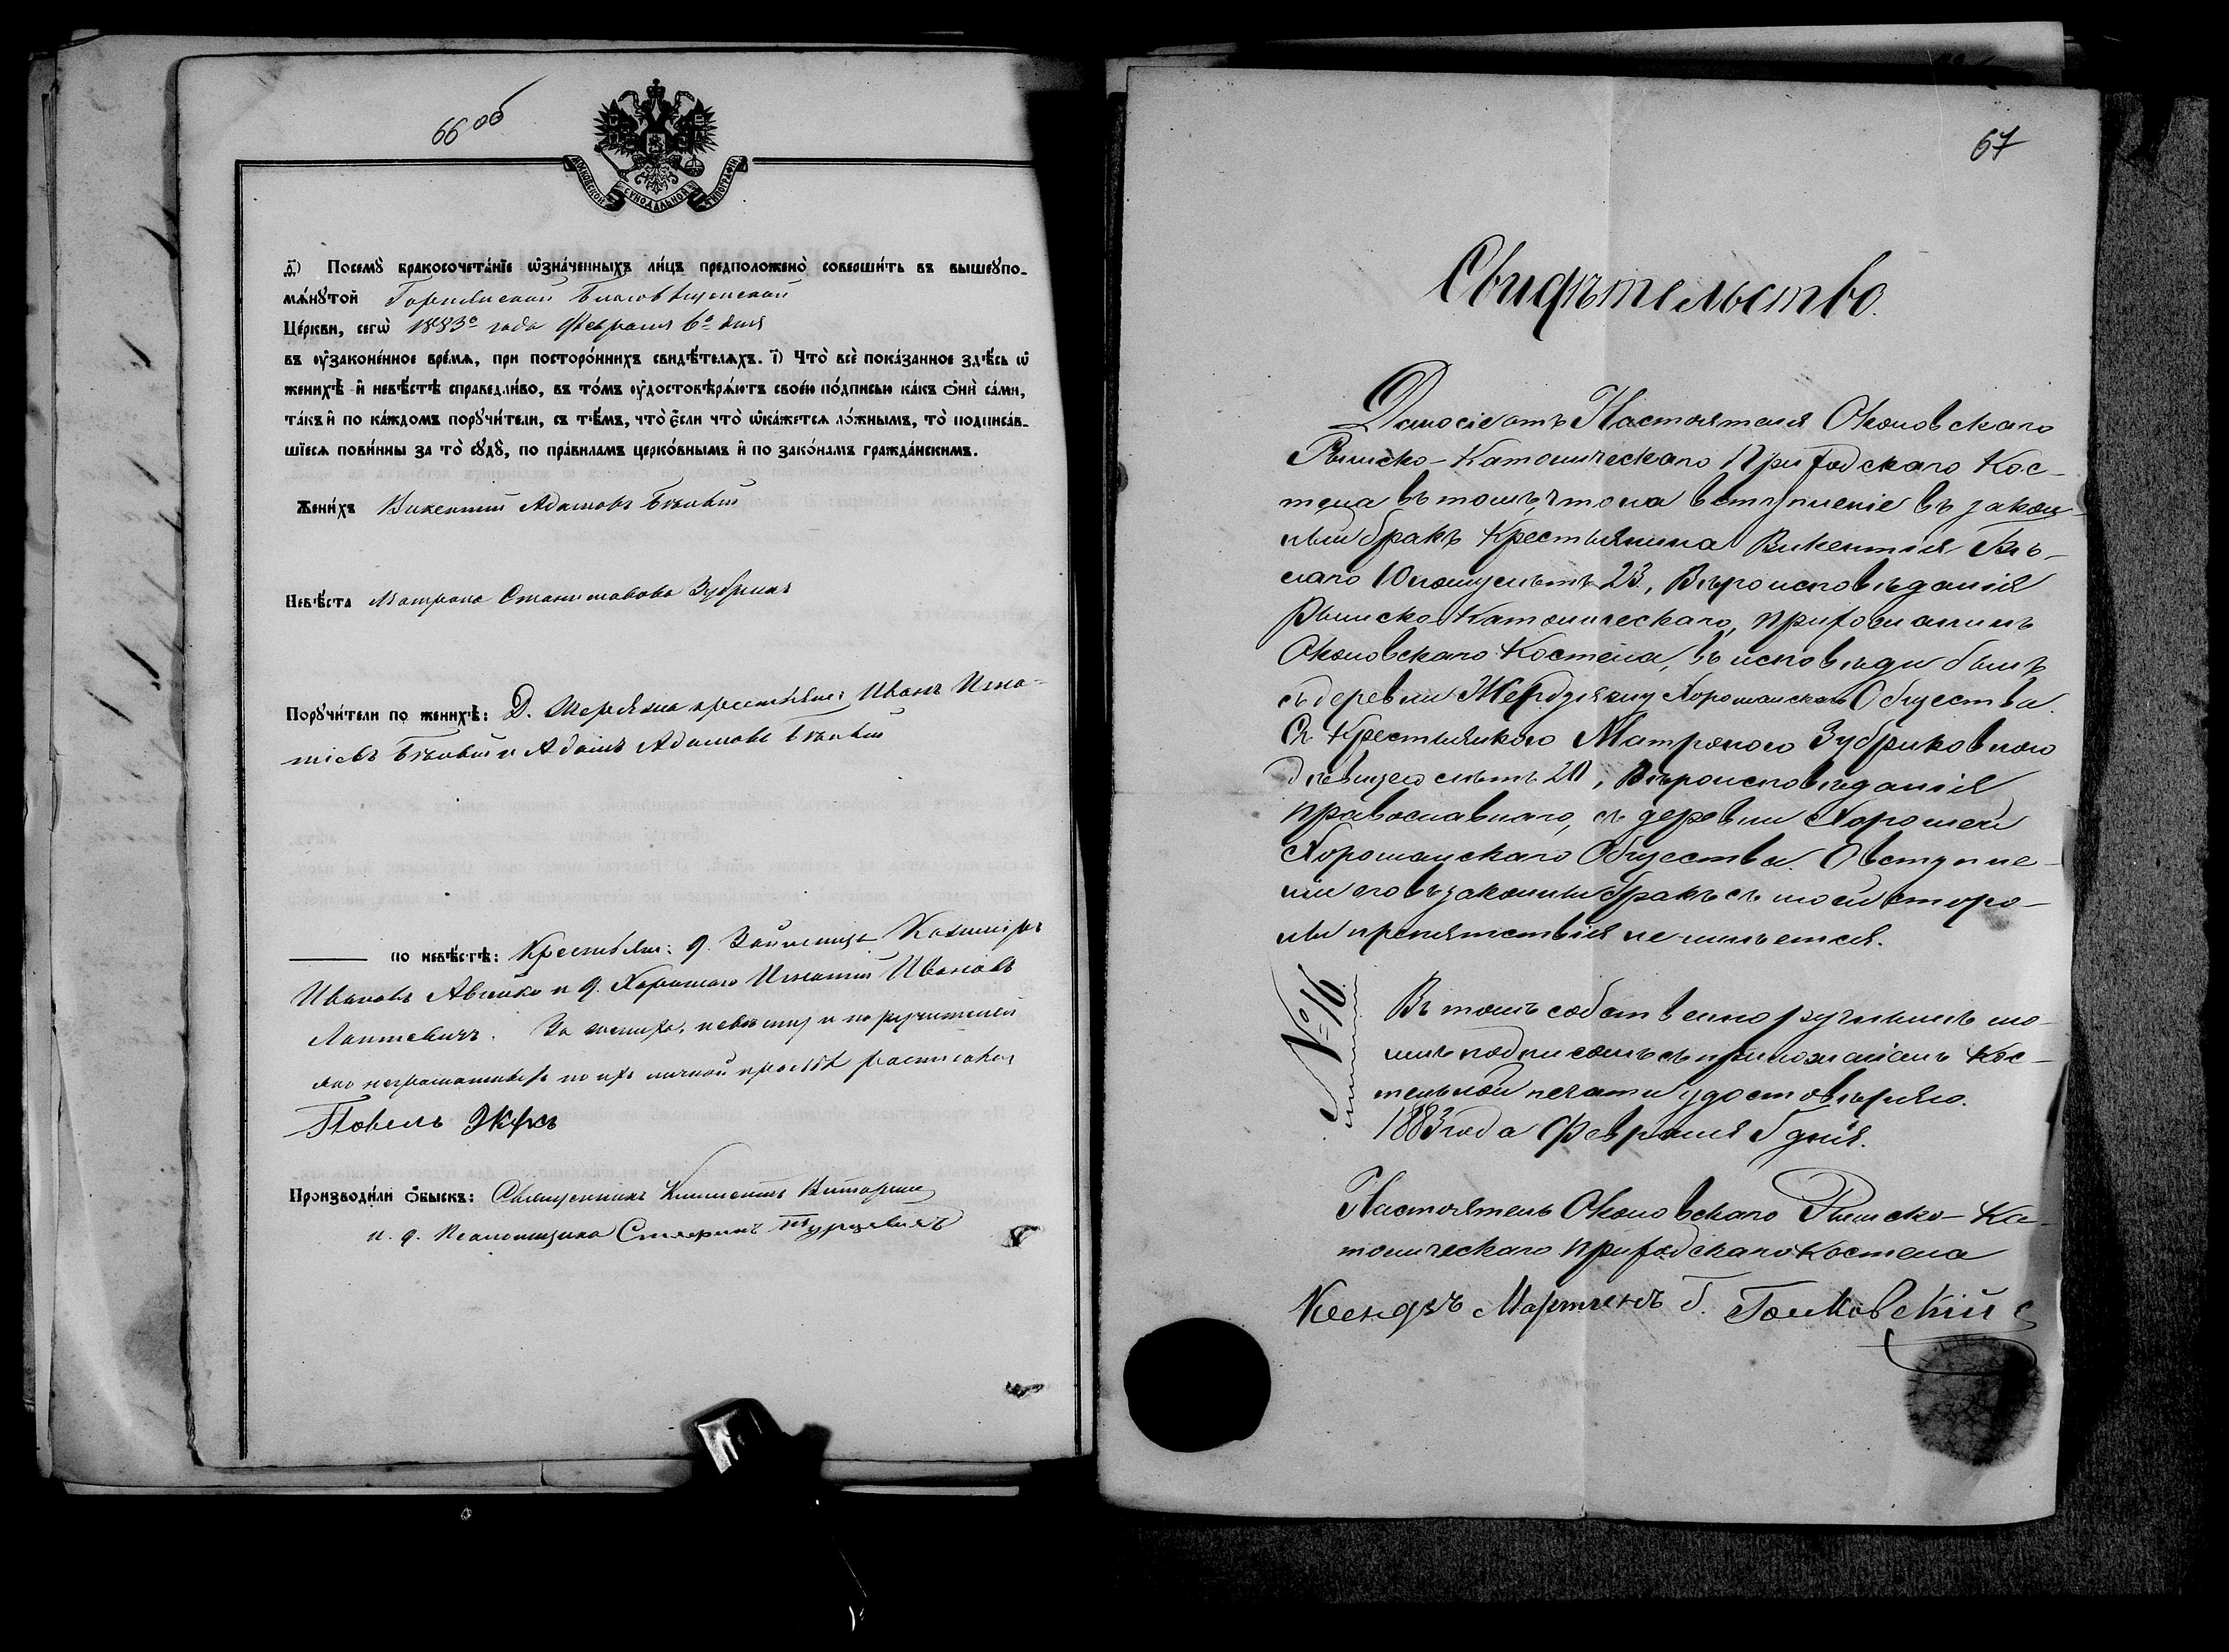 66 об
МОСКОВСКОЙ СѴНОДАЛЬНОЙ ТИПОГРАФІИ
ѳ҃) Посемꙋ̀ бракосочета́нїе ѡ҆зна́ченныхъ ли́цъ предположено̀ соверши́ть въ вышеꙋпо-
мѧ́нꙋтой Благовѣщенской
Це́ркви, сегѡ̀ 1883го года Февраля 6го дня
въ ᲂу҆законе́нное вре́мѧ, при посторо́ннихъ свидѣ́телѧхъ. і҃) Что̀ всѐ пока́занное здѣ́сь ѡ҆
женихѣ̀ и҆ невѣ́стѣ справедли́во, въ то́мъ ᲂу҆достовѣрѧ́ютъ свое́ю по́дписью ка́къ ѻ҆нѝ са́ми,
та́къ и҆ по ка́ждомъ порꙋчи́тели, съ тѣ́мъ, что̀ є҆́сли что̀ ѡ҆ка́жетсѧ ло́жнымъ, то̀ подписа́в-
шїесѧ пови́нны за то̀ сꙋдꙋ̀, по пра́виламъ церко́внымъ и҆ по зако́намъ гражда́нскимъ.
Жени́хъ Викентій Адамовъ Бѣлый
Невѣ́ста Матрона Станиславова Зубрикъ
Порꙋчи́тели по женихѣ̀: Д. крестьяне: Иванъ Игна-
тіевъ Бѣлый и Адамъ Адамовъ Бѣлый
по невѣ́стѣ: Крестьян: д. Казиміръ
Ивановъ и д. Хорошаго Игнатій Ивановъ
Лаптевичъ. За жениха, невѣсту и поручителей
яко неграмотныхъ по ихъ личной прозьбѣ росписался
Павелъ
Производи́ли ѻ҆́быскъ: Священникъ Климентъ
и. д. Псаломщика
67
Свидѣтельство.
Дано сіе отъ Настоятеля Околовскаго
Римско-Католическаго Приходскаго Кос-
тела въ томъ, что на вступленіе въ закон-
ный бракъ Крестьянина Викентія Бѣ-
лаго Юношу лѣтъ 23, Вѣроисповѣданія
Римско-Католическаго, прихожанинъ
Околовскаго Костела, въ исповѣди былъ
съ деревни Общества.
Съ Крестьянкою Матроною Зубриковною
дѣвицею лѣтъ 20, Вѣроисповѣданія
православнаго, съ деревни Хорошей
Общества. О вступле-
ніи его въ законный бракъ съ моей сторо-
ны препятствія не имѣется.
№ 16
Въ томъ собственноручнымъ мо-
имъ подписомъ съ приложеніемъ Кос-
тельной печати удостовѣряю.
1883 года Февраля 5 дня.
Настоятель Околовскаго Римско-Ка-
толическаго приходскаго Костела
Ксендзъ